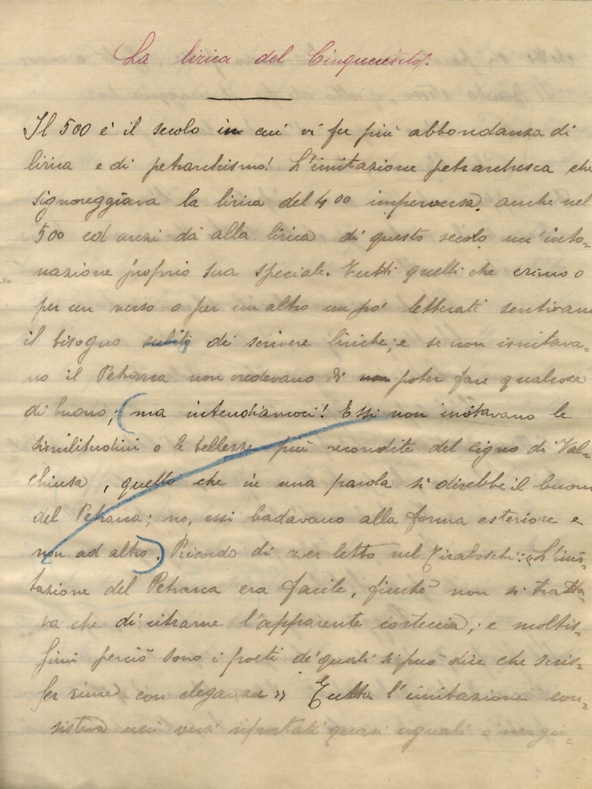 La lirica del Cinquecento.
Il 500 è il secolo in cui vi fu più abbondanza di
lirica e di petrarchismo! L'imitazione petrarchesca che
signoreggiava la lirica del 400 imperversa anche nel
500 ed anzi dà alla lirica di questo secolo un'into-
nazione proprio sua speciale. Tutti quelli che erano o
per un verso o per un altro un po' letterati sentivano
il bisogno subito di scrivere liriche; e se non imitava-
no il Petrarca non credevano di non poter fare qualcosa
di buono; (ma intendiamoci! Essi non imitavano le
similitudini o le bellezze più recondite del cigno di Val-
chiusa, quello che in una parola si direbbe il buono
del Petrarca; no, essi badavano alla forma esteriore e
non ad altro.) Ricordo di aver letto nel Tiraboschi: «L'imi-
tazione del Petrarca era facile, finchè non si tratta-
va che di ritrarne l'apparente corteccia; e moltis-
simi perciò sono i poeti de' quali si può dire che scris-
ser rime con eleganza» Tutta l'imitazione con-
sisteva nei versi riportati quasi uguali o